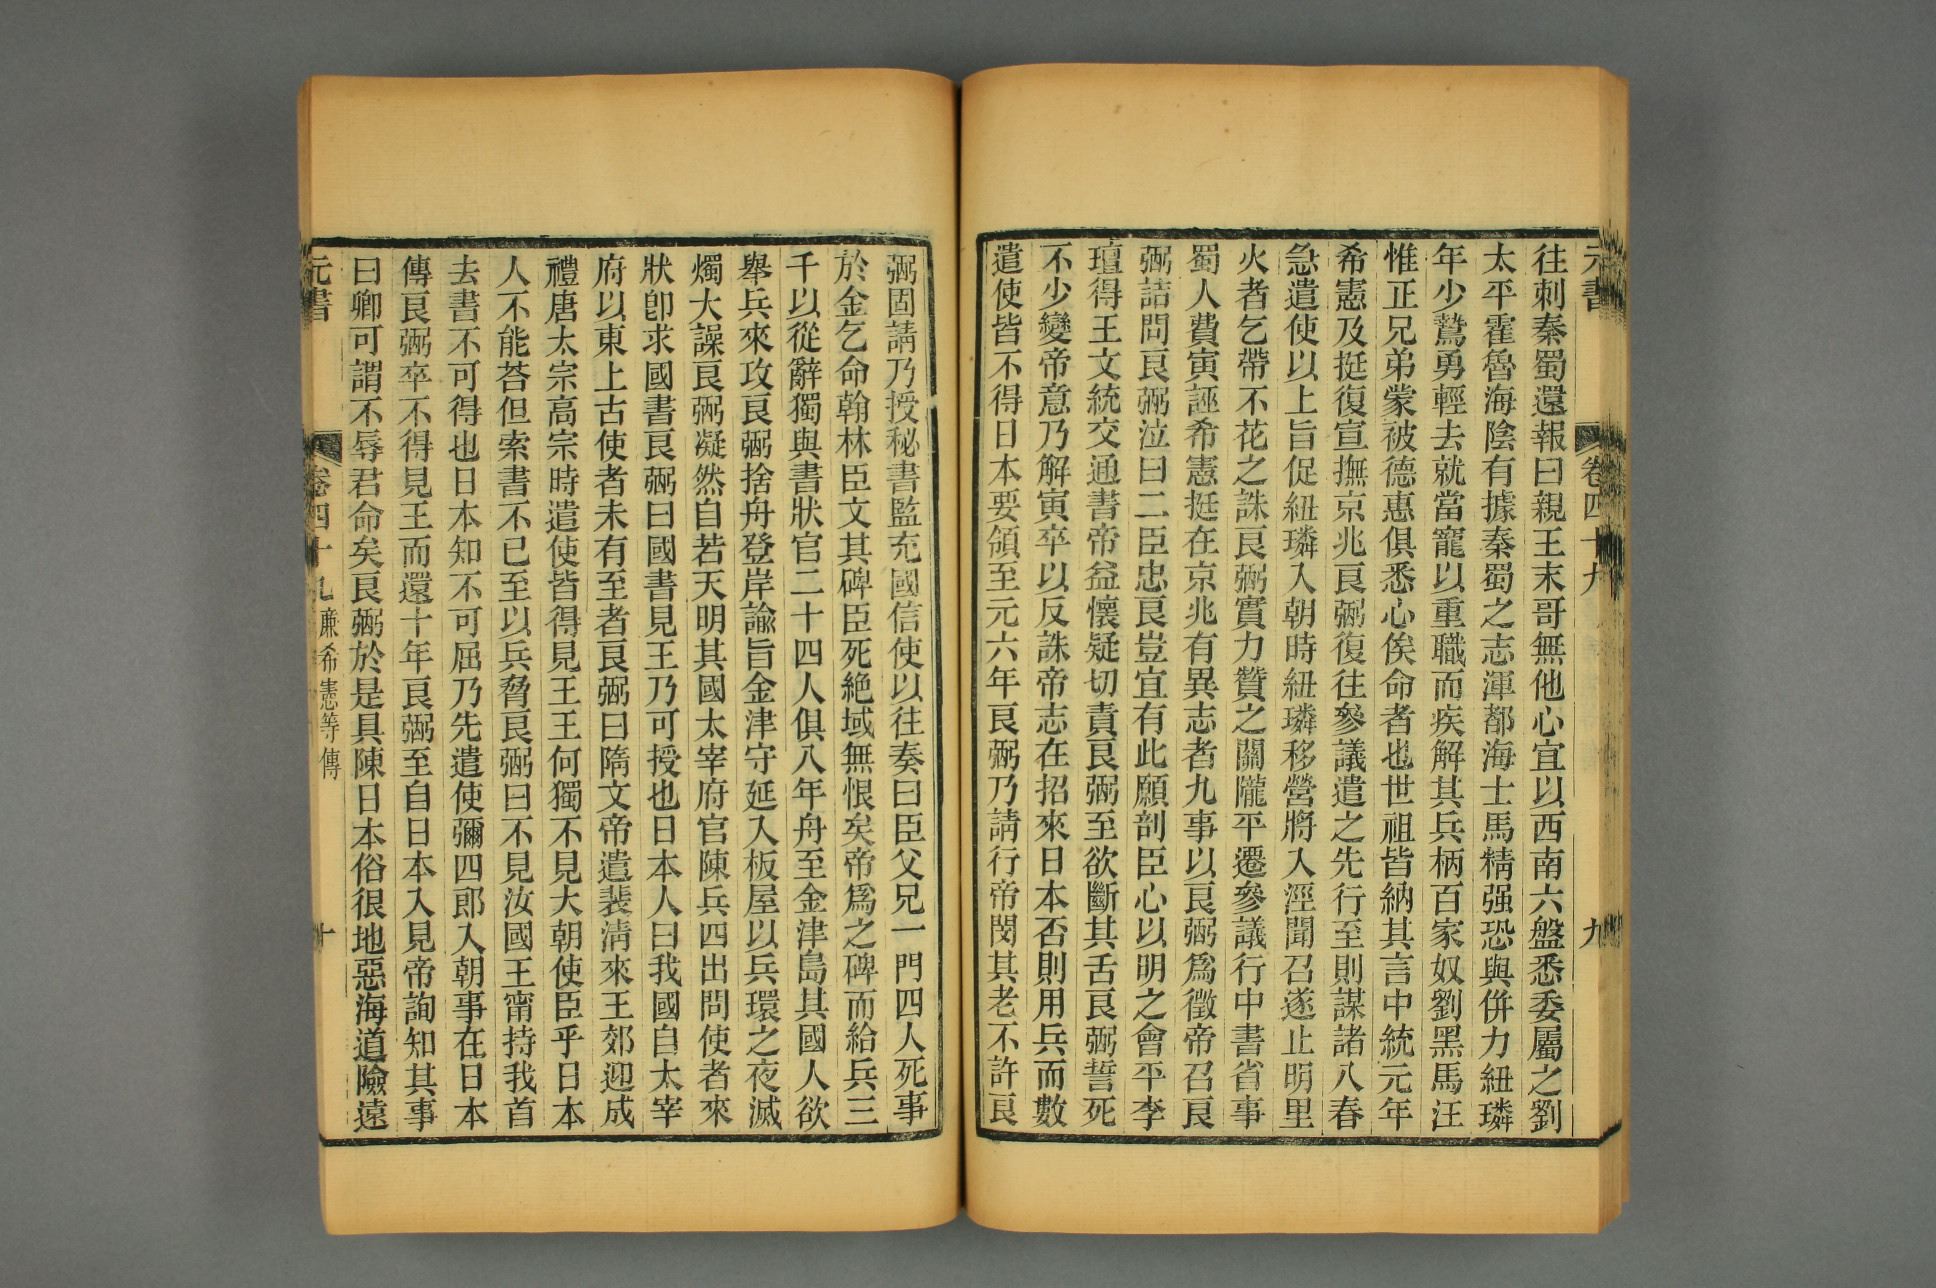 元書 卷四十九 九
往刺秦蜀還報曰親王末哥無他心宜以西南六盤悉委屬之劉
太平霍魯海陰有據秦蜀之志渾都海士馬精强恐與併力紐璘
年少鷙勇輕去就當寵以重職而疾解其兵柄百家奴劉黑馬汪
惟正兄弟蒙被德惠俱悉心俟命者也世祖皆納其言中統元年
希憲及挺復宣撫京兆良弼復往參議遣之先行至則謀諸八春
急遣使以上旨促紐璘入朝時紐璘移營將入涇聞召遂止明里
火者乞帶不花之誅良弼實力贊之關隴平遷參議行中書省事
蜀人費寅誣希憲挺在京兆有異志者九事以良弼爲徵帝召良
弼詰問良弼泣曰二臣忠良豈宜有此願剖臣心以明之會平李
璮得王文統交通書帝益懷疑切責良弼至欲斷其舌良弼誓死
不少變帝意乃解寅卒以反誅帝志在招來日本否則用兵而數
遣使皆不得日本要領至元六年良弼乃請行帝閔其老不許良
弼固請乃授秘書監充國信使以往奏曰臣父兄一門四人死事
於金乞命翰林臣文其碑臣死絶域無恨矣帝爲之碑而給兵三
千以從辭獨與書狀官二十四人俱八年舟至金津島其國人欲
舉兵來攻良弼捨舟登岸諭旨金津守延入板屋以兵環之夜滅
燭大譟良弼凝然自若天明其國太宰府官陳兵四出問使者來
狀卽求國書良弼曰國書見王乃可授也日本人曰我國自太宰
府以東上古使者未有至者良弼曰隋文帝遣裴淸來王郊迎成
禮唐太宗高宗時遣使皆得見王王何獨不見大朝使臣乎日本
人不能荅但索書不已至以兵脅良弼曰不見汝國王甯持我首
去書不可得也日本知不可屈乃先遣使彌四郎入朝事在日本
傳良弼卒不得見王而還十年良弼至自日本入見帝詢知其事
曰卿可謂不辱君命矣良弼於是具陳日本俗很地惡海道險遠
元書 卷四十九 廉希憲等傳 十